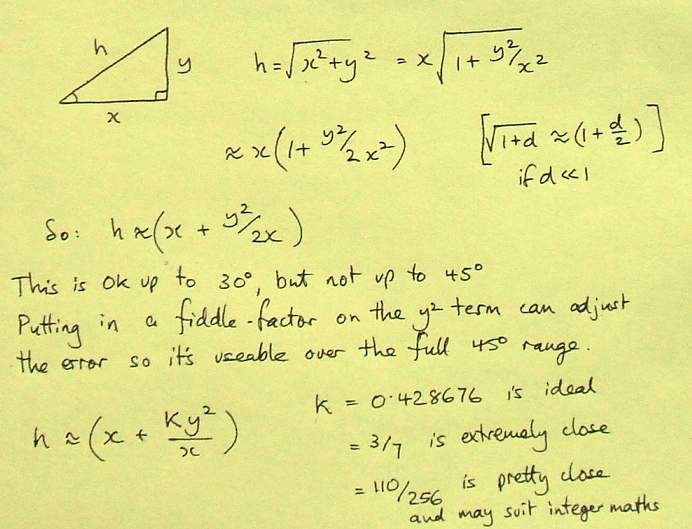 h
y
x
h = √(x² + y²) = x√(1 + y²/x²)
≈ x(1 + y²/2x²) [√(1+d) ≈ (1 + d/2)]
if d << 1
So: h ≈ (x + y²/2x)
This is ok up to 30°, but not up to 45°
Putting in a fiddle-factor on the y² term can adjust
the error so it's useable over the full 45° range.
h ≈ (x + Ky²/x)
K = 0.428676 is ideal
= 3/7 is extremely close
= 110/256 is pretty close
and may suit integer maths